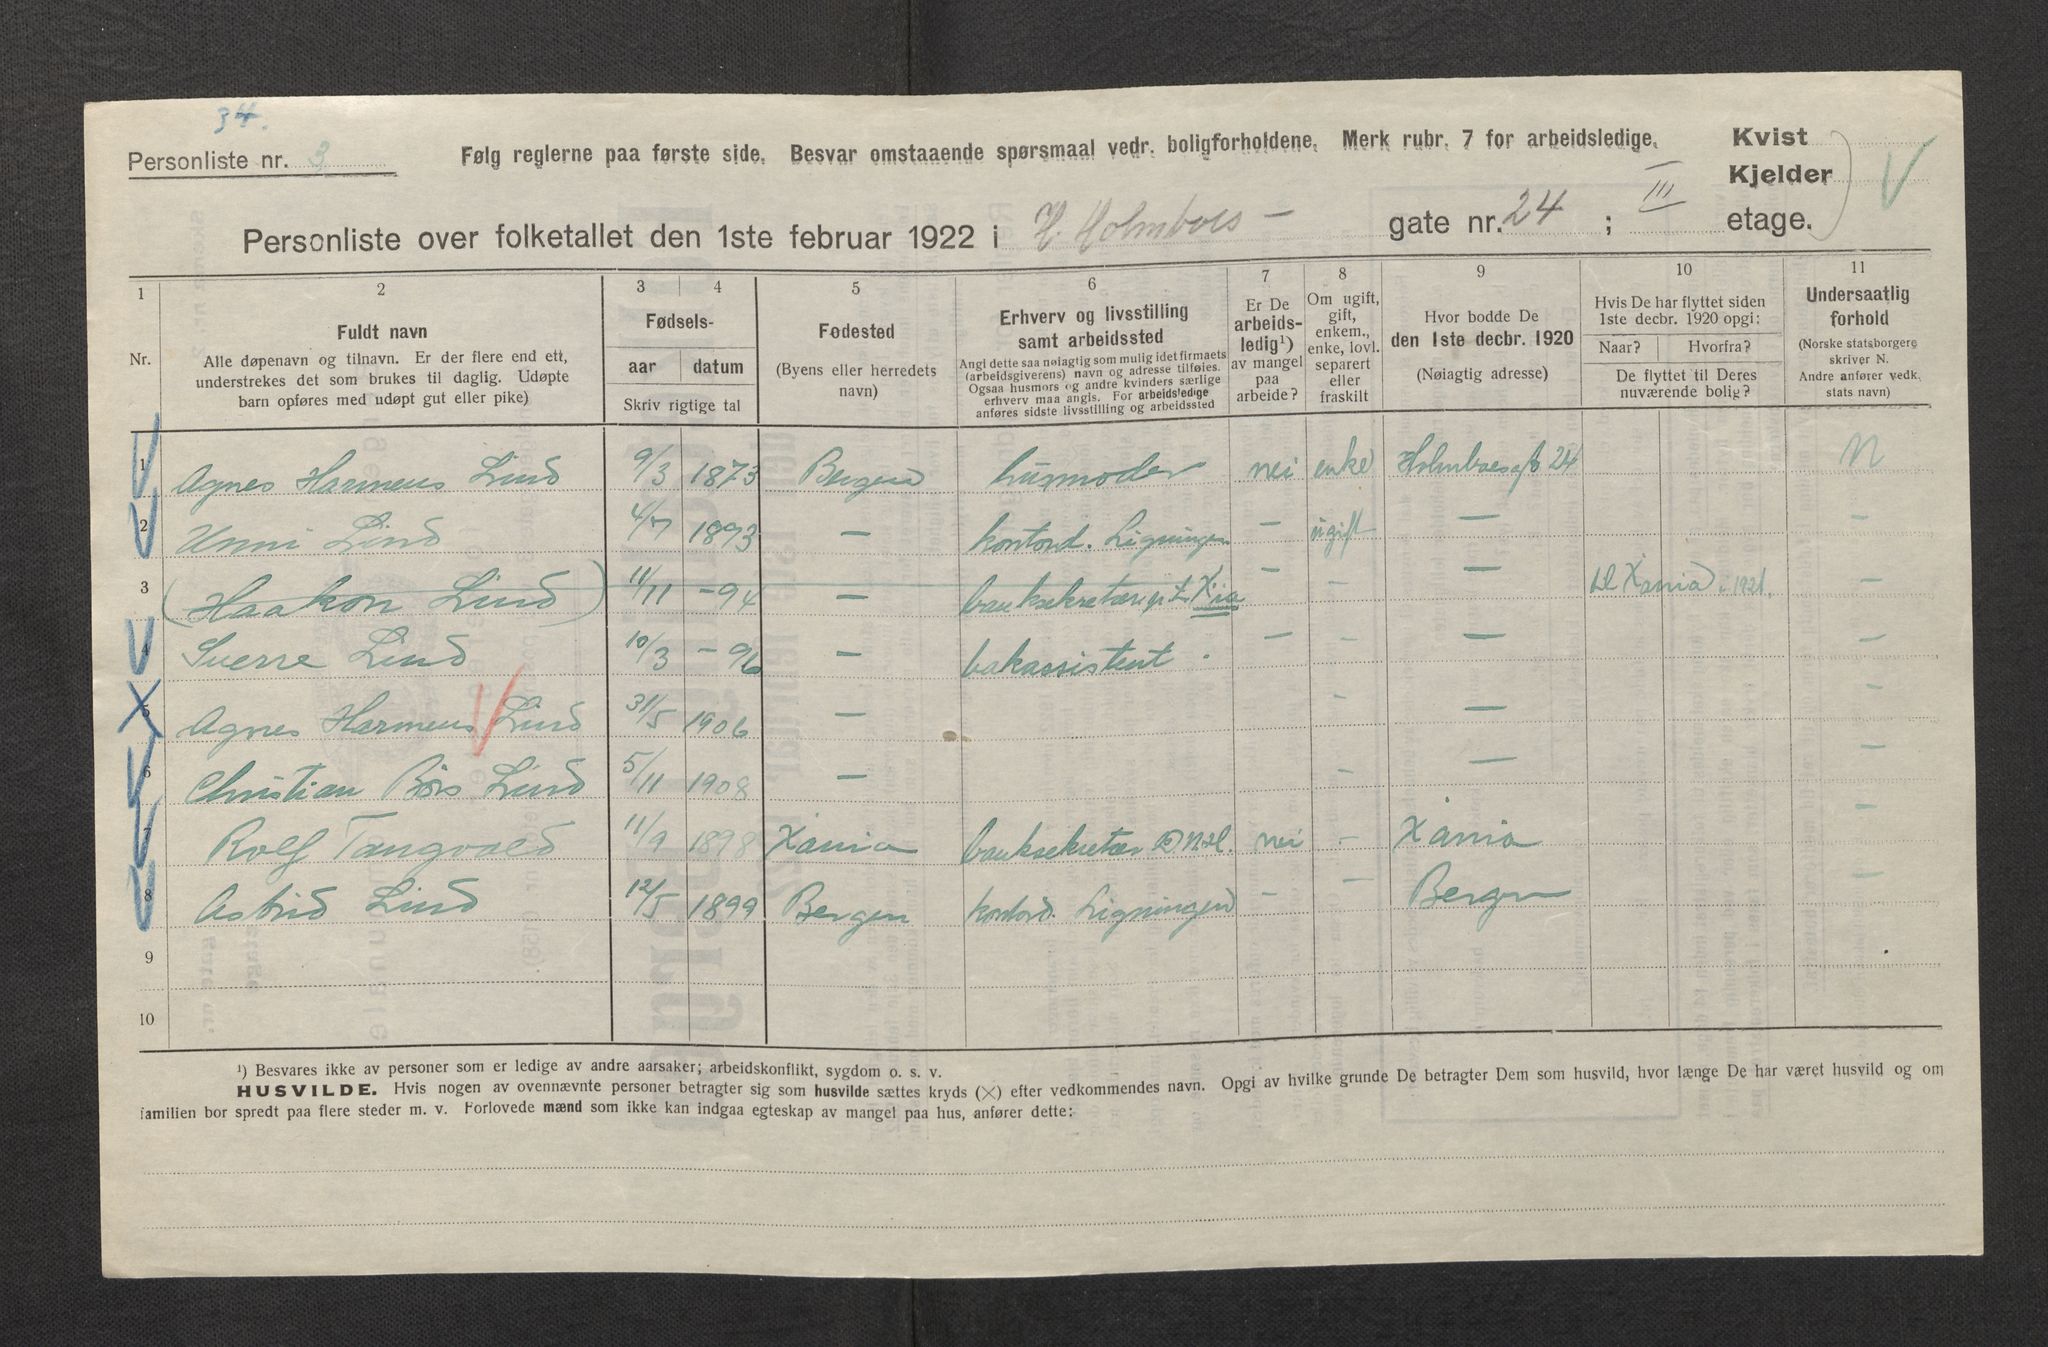 34.
Personliste nr. 3
Følg reglerne paa første side. Besvar omstaaende spørsmaal vedr. boligforholdene. Merk rubr. 7 for arbeidsledige.
Kvist
Kjelder
V
Personliste over folketallet den 1ste februar 1922 i H. Holmboes - gate nr. 24 ; III etage.
1 2 3 4 5 6 7 8 9 10 11
Nr.
Fuldt navn
Alle døpenavn og tilnavn. Er der flere end ett,
understrekes det som brukes til daglig. Udøpte
barn opføres med udøpt gut eller pike)
Fødsels-
aar datum
Skriv rigtige tal
Fødested
(Byens eller herredets
navn)
Erhverv og livsstilling
samt arbeidssted
Angi dette saa nøiagtig som mulig idet firmaets
(arbeidsgiverens) navn og adresse tilføies.
Ogsaa husmors og andre kvinders særlige
erhverv maa angis. For arbeidsledige
anføres sidste livsstilling og arbeidssted
Er De
arbeids-
ledig¹)
av mangel
paa
arbeide?
Om ugift,
gift,
enkem.,
enke, lovl.
separert
eller
fraskilt
Hvor bodde De
den 1ste decbr. 1920
(Nøiagtig adresse)
Hvis De har flyttet siden
1ste decbr. 1920 opgi:
Naar? Hvorfra?
De flyttet til Deres
nuværende bolig?
Undersaatlig
forhold
(Norske statsborgere
skriver N.
Andre anfører vedk.
stats navn)
1 Agnes Harmens Lind 9/3 1873 Bergen husmoder nei enke Holmboesgt 24 N
2 Unni Lind 4/7 1893 — kontord. Ligningen — ugift — —
3 (Haakon Lind) 11/11 -94 — banksekretær i Xia — — — til Xania i 1921. —
4 Sverre Lind 10/3 -96 — bakassistent. — — — —
5 Agnes Harmens Lind 31/5 1906 — — — —
6 Christian Börs Lind 5/11 1908 — — — —
7 Rolf Tangvald 11/9 1898 Xania banksekretær nei - Xania —
8 Astrid Lind 12/5 1899 Bergen kontord. Ligningen - — Bergen —
9
10
¹) Besvares ikke av personer som er ledige av andre aarsaker; arbeidskonflikt, sygdom o. s. v.
HUSVILDE. Hvis nogen av ovennævnte personer betragter sig som husvilde sættes kryds (X) efter vedkommendes navn. Opgi av hvilke grunde De betragter Dem som husvild, hvor længe De har været husvild og om
familien bor spredt paa flere steder m. v. Forlovede mænd som ikke kan indgaa egteskap av mangel paa hus, anfører dette: